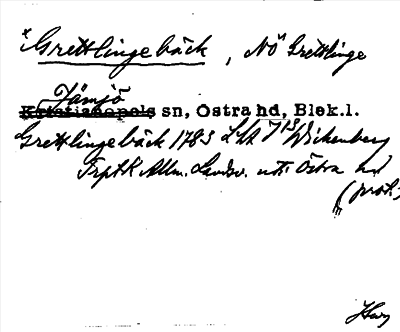 *Grettlingebäck, NÖ Grettlinge
Jämjö
Kristianopels sn, Östra hd, Blek.l.
Grettlingebäck 1783 LSA J 15 Wickenberg
Trpt K Allm. Landsv. uti Östra hd
(prot.)